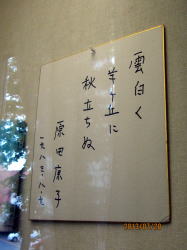 雲白く
羊ケ丘に
秋立ちぬ
原田康子
一九八三・八・九
2013/07/20